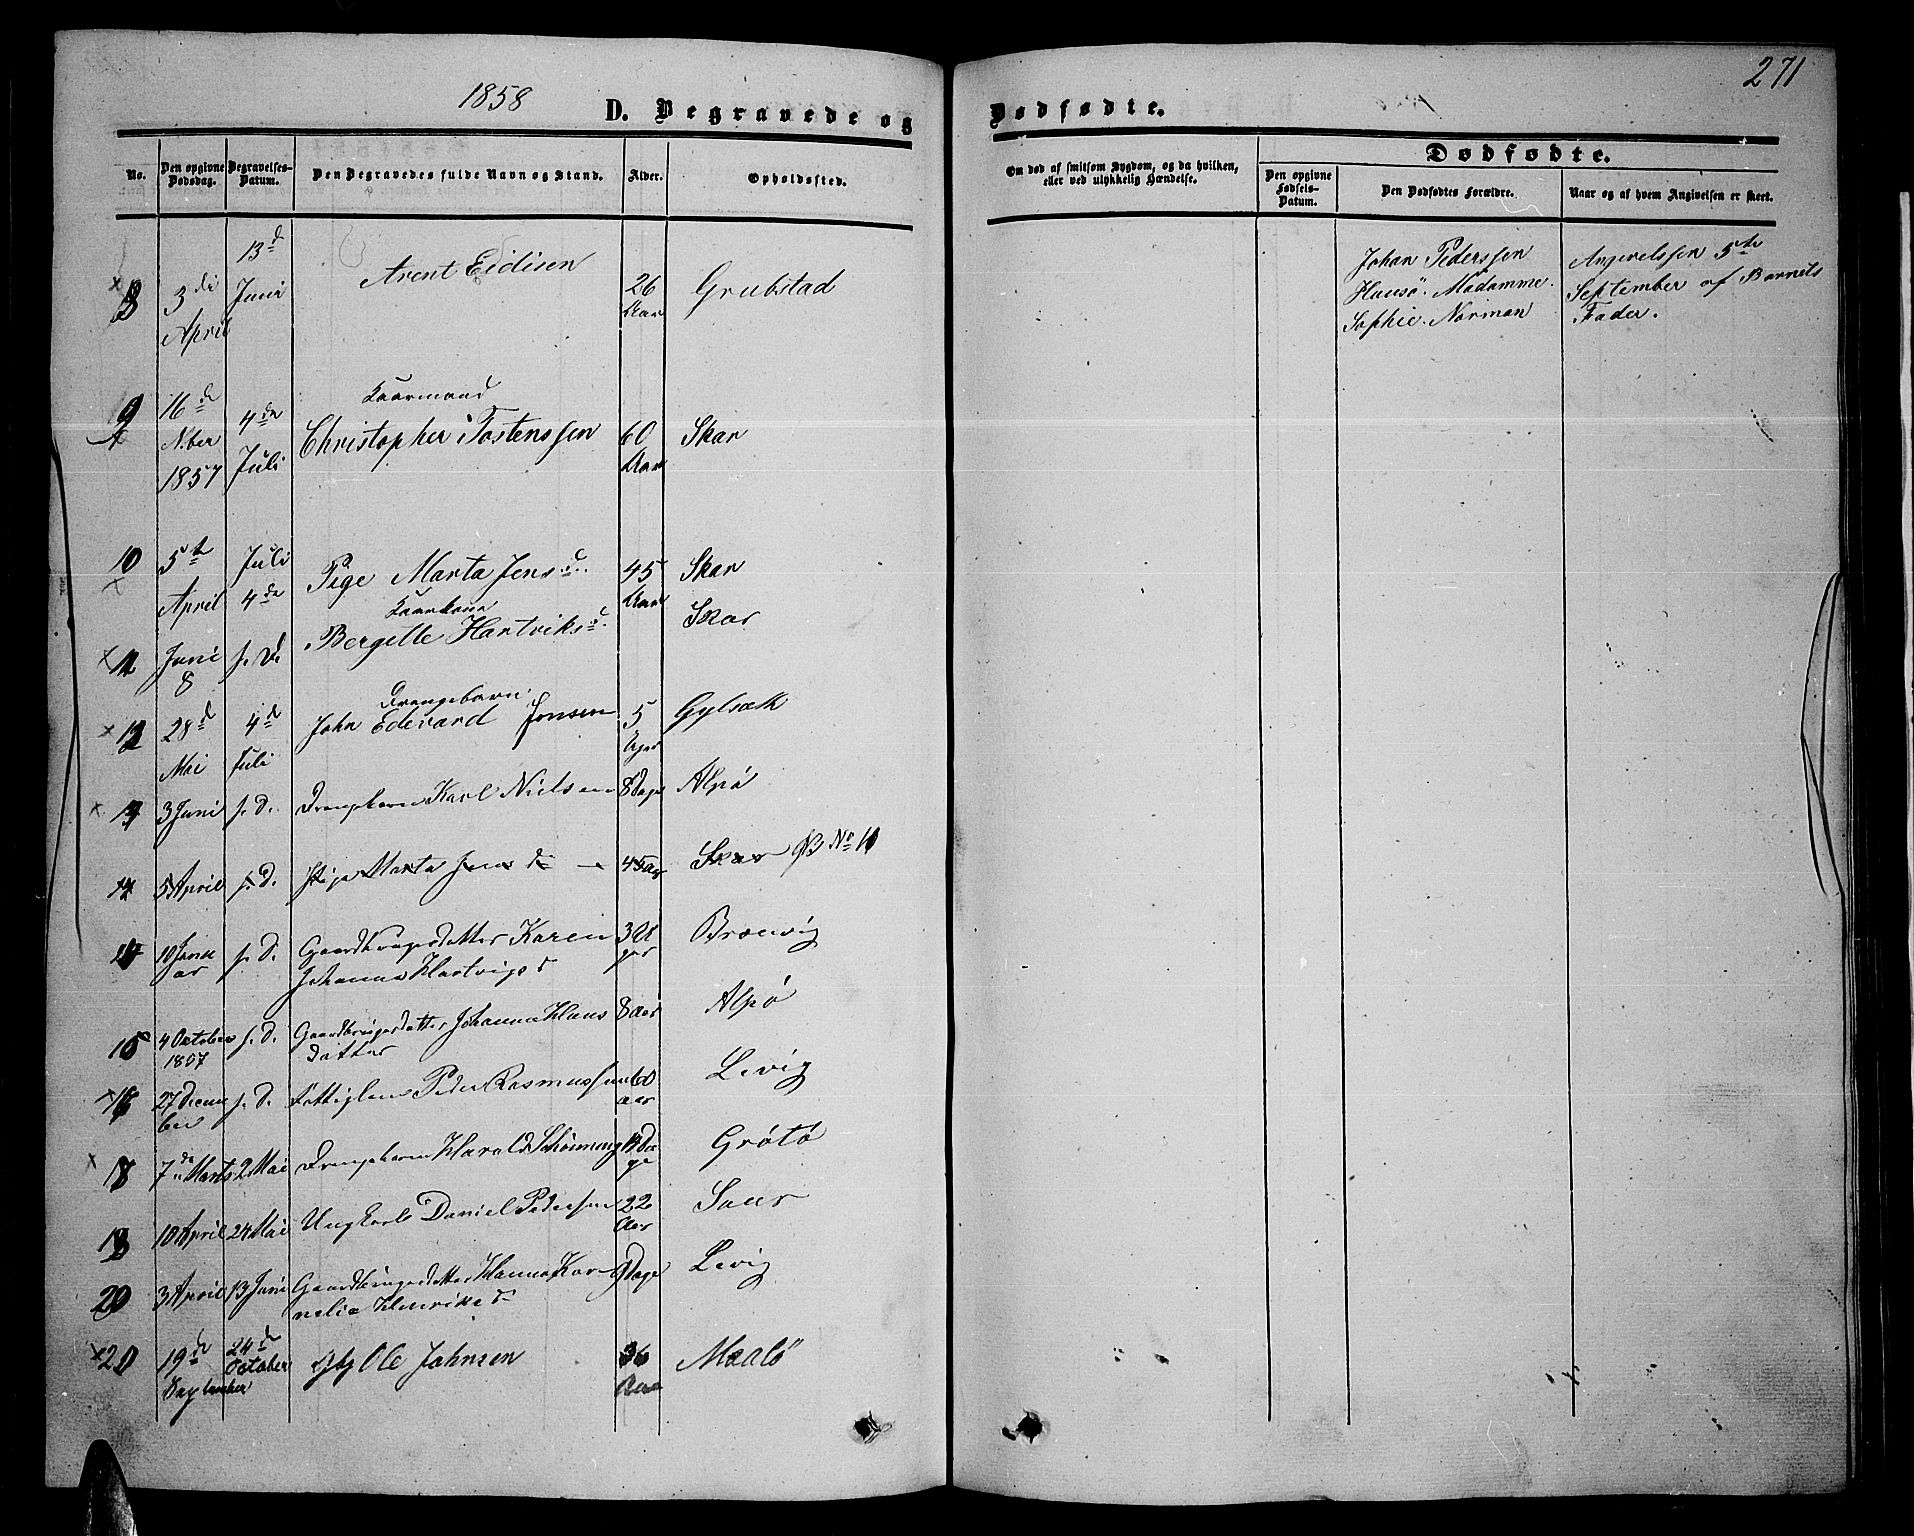 1858
D. Begravede og
No.
Den opgivne Dødsdag.
Begravelses-Datum.
Den Begravedes fulde Navn og Stand.
Alder.
Opholdssted.
8 3die April 13d Juni Arent Eidisen 26 Aar Grubstad
9 16de Nber 1857 4de Juli Kaarmand Christopher Tostenssen 60 Aar Skar
10 5te April Juli 4de Pige Marta Jensd. 45 Aar Skar
11 Juni 8 s. D. Kaarkone Bergette Hartviksd. Skar
12 28d Mai 4d Juli Drengebarn John Edevard Jonsen 5 Uger
13 3 Juni s. D. Drengebarn Karl Nielsen 8 Dage Alpø
14 5 April s. D. Pige Marta Jens d. 45 Aar Skar No 10
10 Janu ar s. D. Gaardbrugerdatter Karen 3 U ger
Johanna Hartvigs d
15 4 October 1857 s. D. Gaardbrugerdatter Johanna Klaus 8 Aar Alpø
datter
16 27 Decem ber s. D. Peder Rasmussen 60 Aar Levig
18 7de Marts 2 Mai Drengebarn Harald Schønning Da ge Grøtø
10 April 24 Mai Ungkarl Daniel Pedersen 22 Aar
20 3 April 13 Juni Gaardbrugerdatter Hanna Kor 9 Dage Levig
nelia Henriks d
20 19de September 24de October Ole Johnsen 36 Aar Maalø
271
Dødfødte.
Om død af smitsom Sygdom, og da hvilken,
eller ved ulykkelig Hændelse.
Dødfødte.
Den opgivne Fødsels-Datum.
Den Dødfødtes Forældre.
Naar og af hvem Angivelsen er skeet.
Johan Pederssen
Madamme.
Sophie Norman
Angivelssen 5te
September af Barnets
Fader.